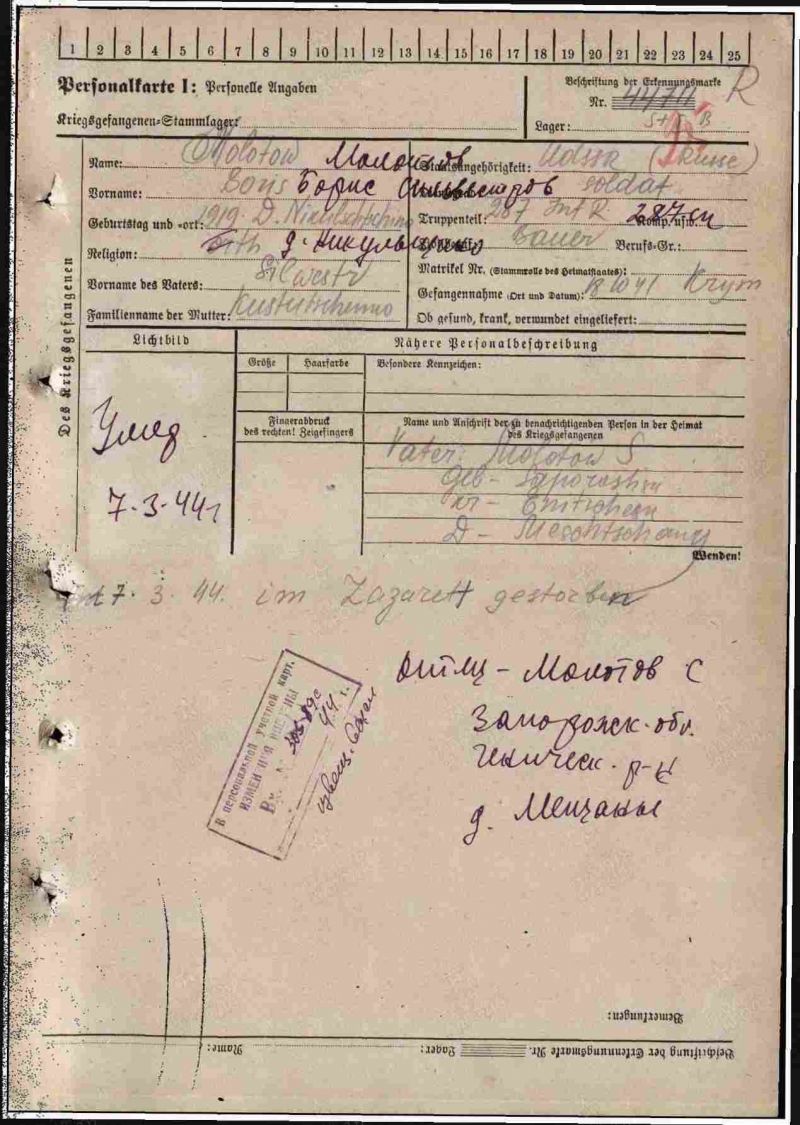 1 2 3 4 5 6 7 8 9 10 11 12 13 14 15 16 17 18 19 20 21 22 23 24 25
Personalkarte I: Personelle Angaben
Kriegsgefangenen-Stammlager:
Beschriftung der Erkennungsmarke
Nr. R
Lager:
Des Kriegsgefangenen
Name: Molotow Молотов
Staatsangehörigkeit: Udssr (Russe)
Vorname: Boris Борис Сильвестров
soldat
Geburtstag und -ort: 1919 D.
Truppenteil: 287 Inf R. 287 сп Komp. usw.
д. Никульщино
Religion: orth
Bauer Berufs-Gr.:
Vorname des Vaters: Silwestr
Matrikel Nr. (Stammrolle des Heimatstaates):
Gefangennahme (Ort und Datum): Krym
Familienname der Mutter:
Ob gesund, krank, verwundet eingeliefert:
Lichtbild
Nähere Personalbeschreibung
Größe Haarfarbe Besondere Kennzeichen:
Fingerabdruck
des rechten! Zeigefingers
Name und Anschrift der zu benachrichtigenden Person in der Heimat
des Kriegsgefangenen
Vater: Molotow S
Geb- Saporoshsk
D- Meschtschany
Умер
7-3-44г
Wenden!
7. 3. 44. im Lazarett gestorben
отец - Молотов С
Запорожск. обл.
Геническ. р-н
д. Мещаны
В персональной учетной карт.
ИЗМЕНЕНИЯ ВНЕСЕНЫ
Вх. №
44 г.
Bemerkungen:
Name: Lager: Beschriftung der Erkennungsmarke Nr.